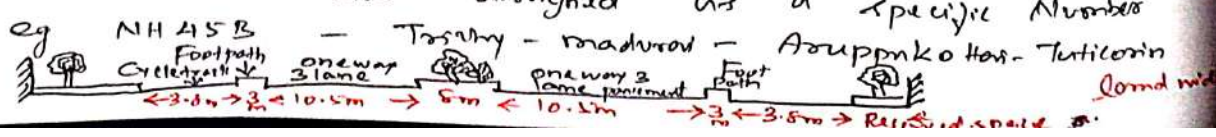 as a specific Number
eg NH 45B - Trichy - madurai - Aruppukottai - Tuticorin
Footpath
Cycletrack
oneway
3 lane
oneway 3
lane pavement
Foot
path
3m 10.5m 5m 10.5m 3m 3.5m